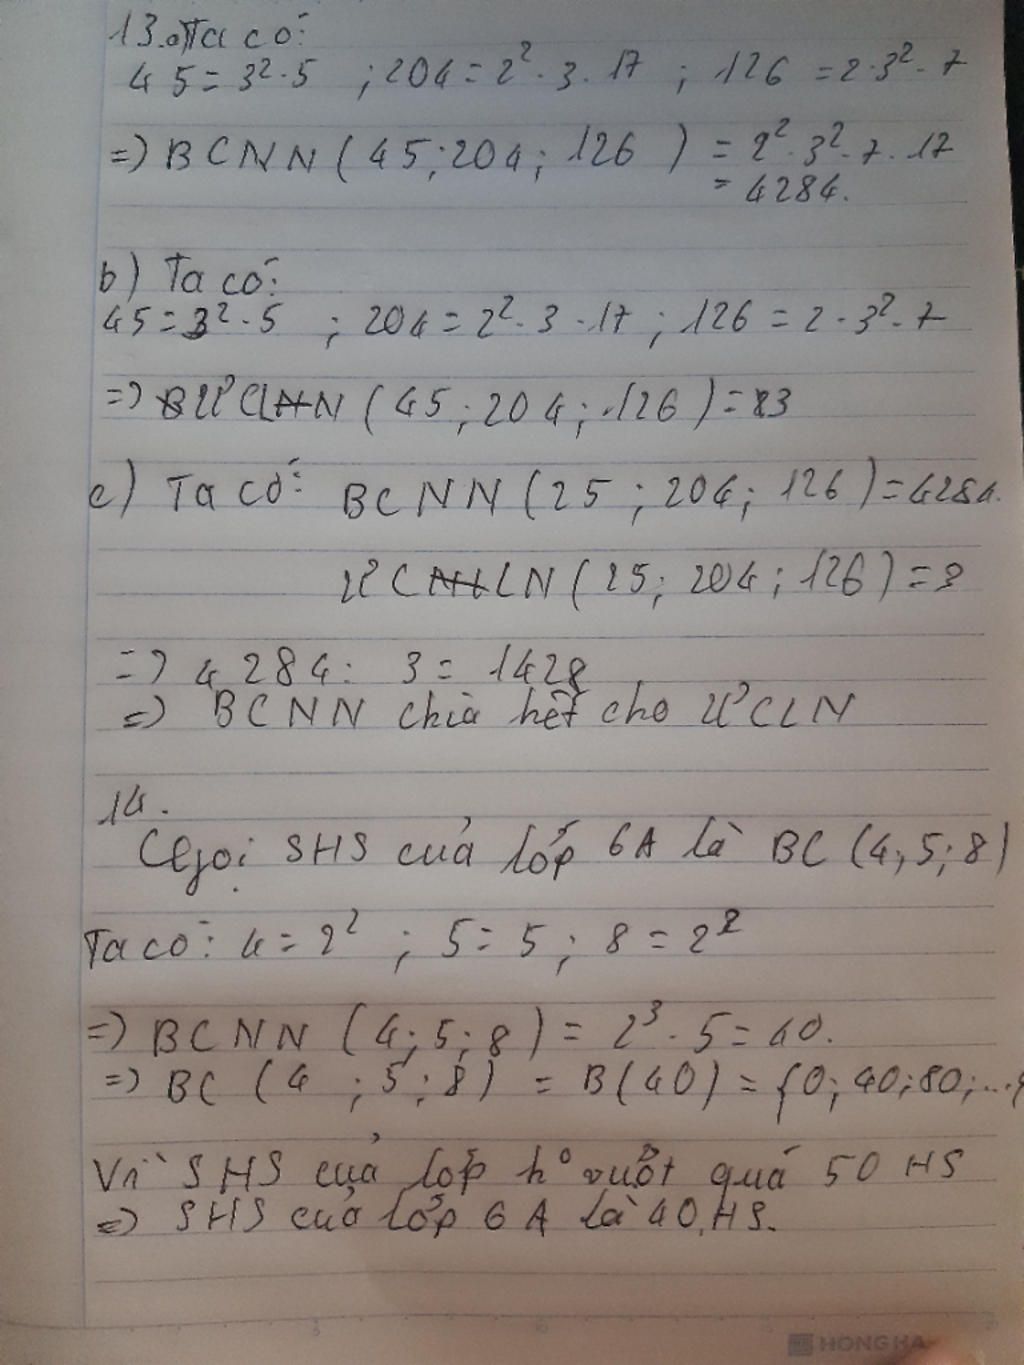 13.a) Ta có:
45 = 3² . 5 ; 204 = 2² . 3 . 17 ; 126 = 2 . 3² . 7
=> BCNN (45; 204; 126) = 2² . 3² . 7 . 17
= 4284.
b) Ta có:
45 = 3² . 5 ; 204 = 2² . 3 . 17 ; 126 = 2 . 3² . 7
=> ƯCLN (45; 204; 126) = 3
c) Ta có: BCNN (25; 204; 126) = 4284.
ƯCLN (25; 204; 126) = 3
=> 4284 : 3 = 1428
=> BCNN chia hết cho ƯCLN
14.
Gọi SHS của lớp 6A là BC (4; 5; 8)
Ta có: 4 = 2² ; 5 = 5 ; 8 = 2²
=> BCNN (4; 5; 8) = 2³ . 5 = 40.
=> BC (4; 5; 8) = B(40) = {0; 40; 80; ...}
Vì SHS của lớp k° vượt quá 50 HS
=> SHS của lớp 6A là 40 HS.
HONG HA